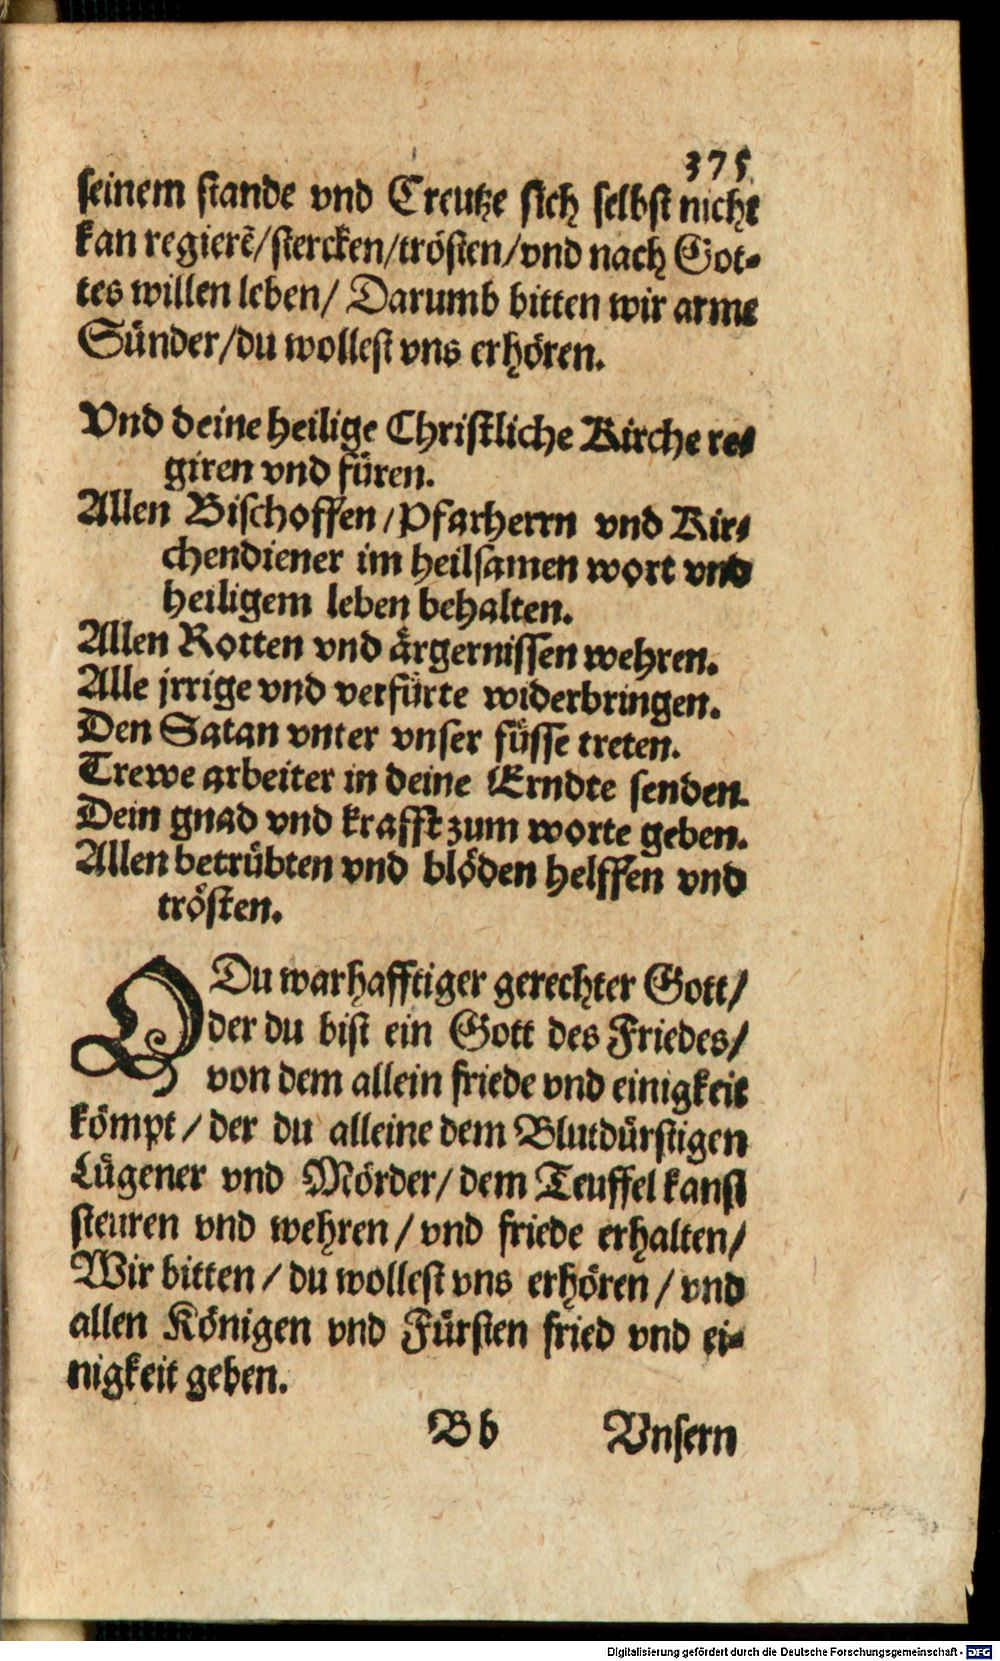 375
seinem stande vnd Creutze sich selbst nicht
kan regierē/stercken/trösten/vnd nach Got-
tes willen leben/ Darumb bitten wir arme
Sünder/du wollest vns erhören.
Vnd deine heilige Christliche Kirche re-
giren vnd füren.
Allen Bischoffen/Pfarherrn vnd Kir-
chendiener im heilsamen wort vnd
heiligem leben behalten.
Allen Rotten vnd ärgernissen wehren.
Alle jrrige vnd verfürte widerbringen.
Den Satan vnter vnser füsse treten.
Trewe arbeiter in deine Erndte senden.
Dein gnad vnd krafft zum worte geben.
Allen betrübten vnd blöden helffen vnd
trösten.
O Du warhafftiger gerechter Gott/
der du bist ein Gott des Friedes/
von dem allein friede vnd einigkeit
kömpt/der du alleine dem Blutdürstigen
Lügener vnd Mörder/dem Teuffel kanst
steuren vnd wehren/vnd friede erhalten/
Wir bitten/du wollest vns erhören/vnd
allen Königen vnd Fürsten fried vnd ei-
nigkeit geben.
Bb Vnsern
Digitalisierung gefördert durch die Deutsche Forschungsgemeinschaft - DFG